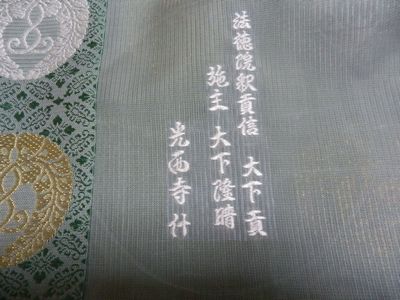 法徳院釈貢信 大下貢
施主 大下隆晴
光西寺什